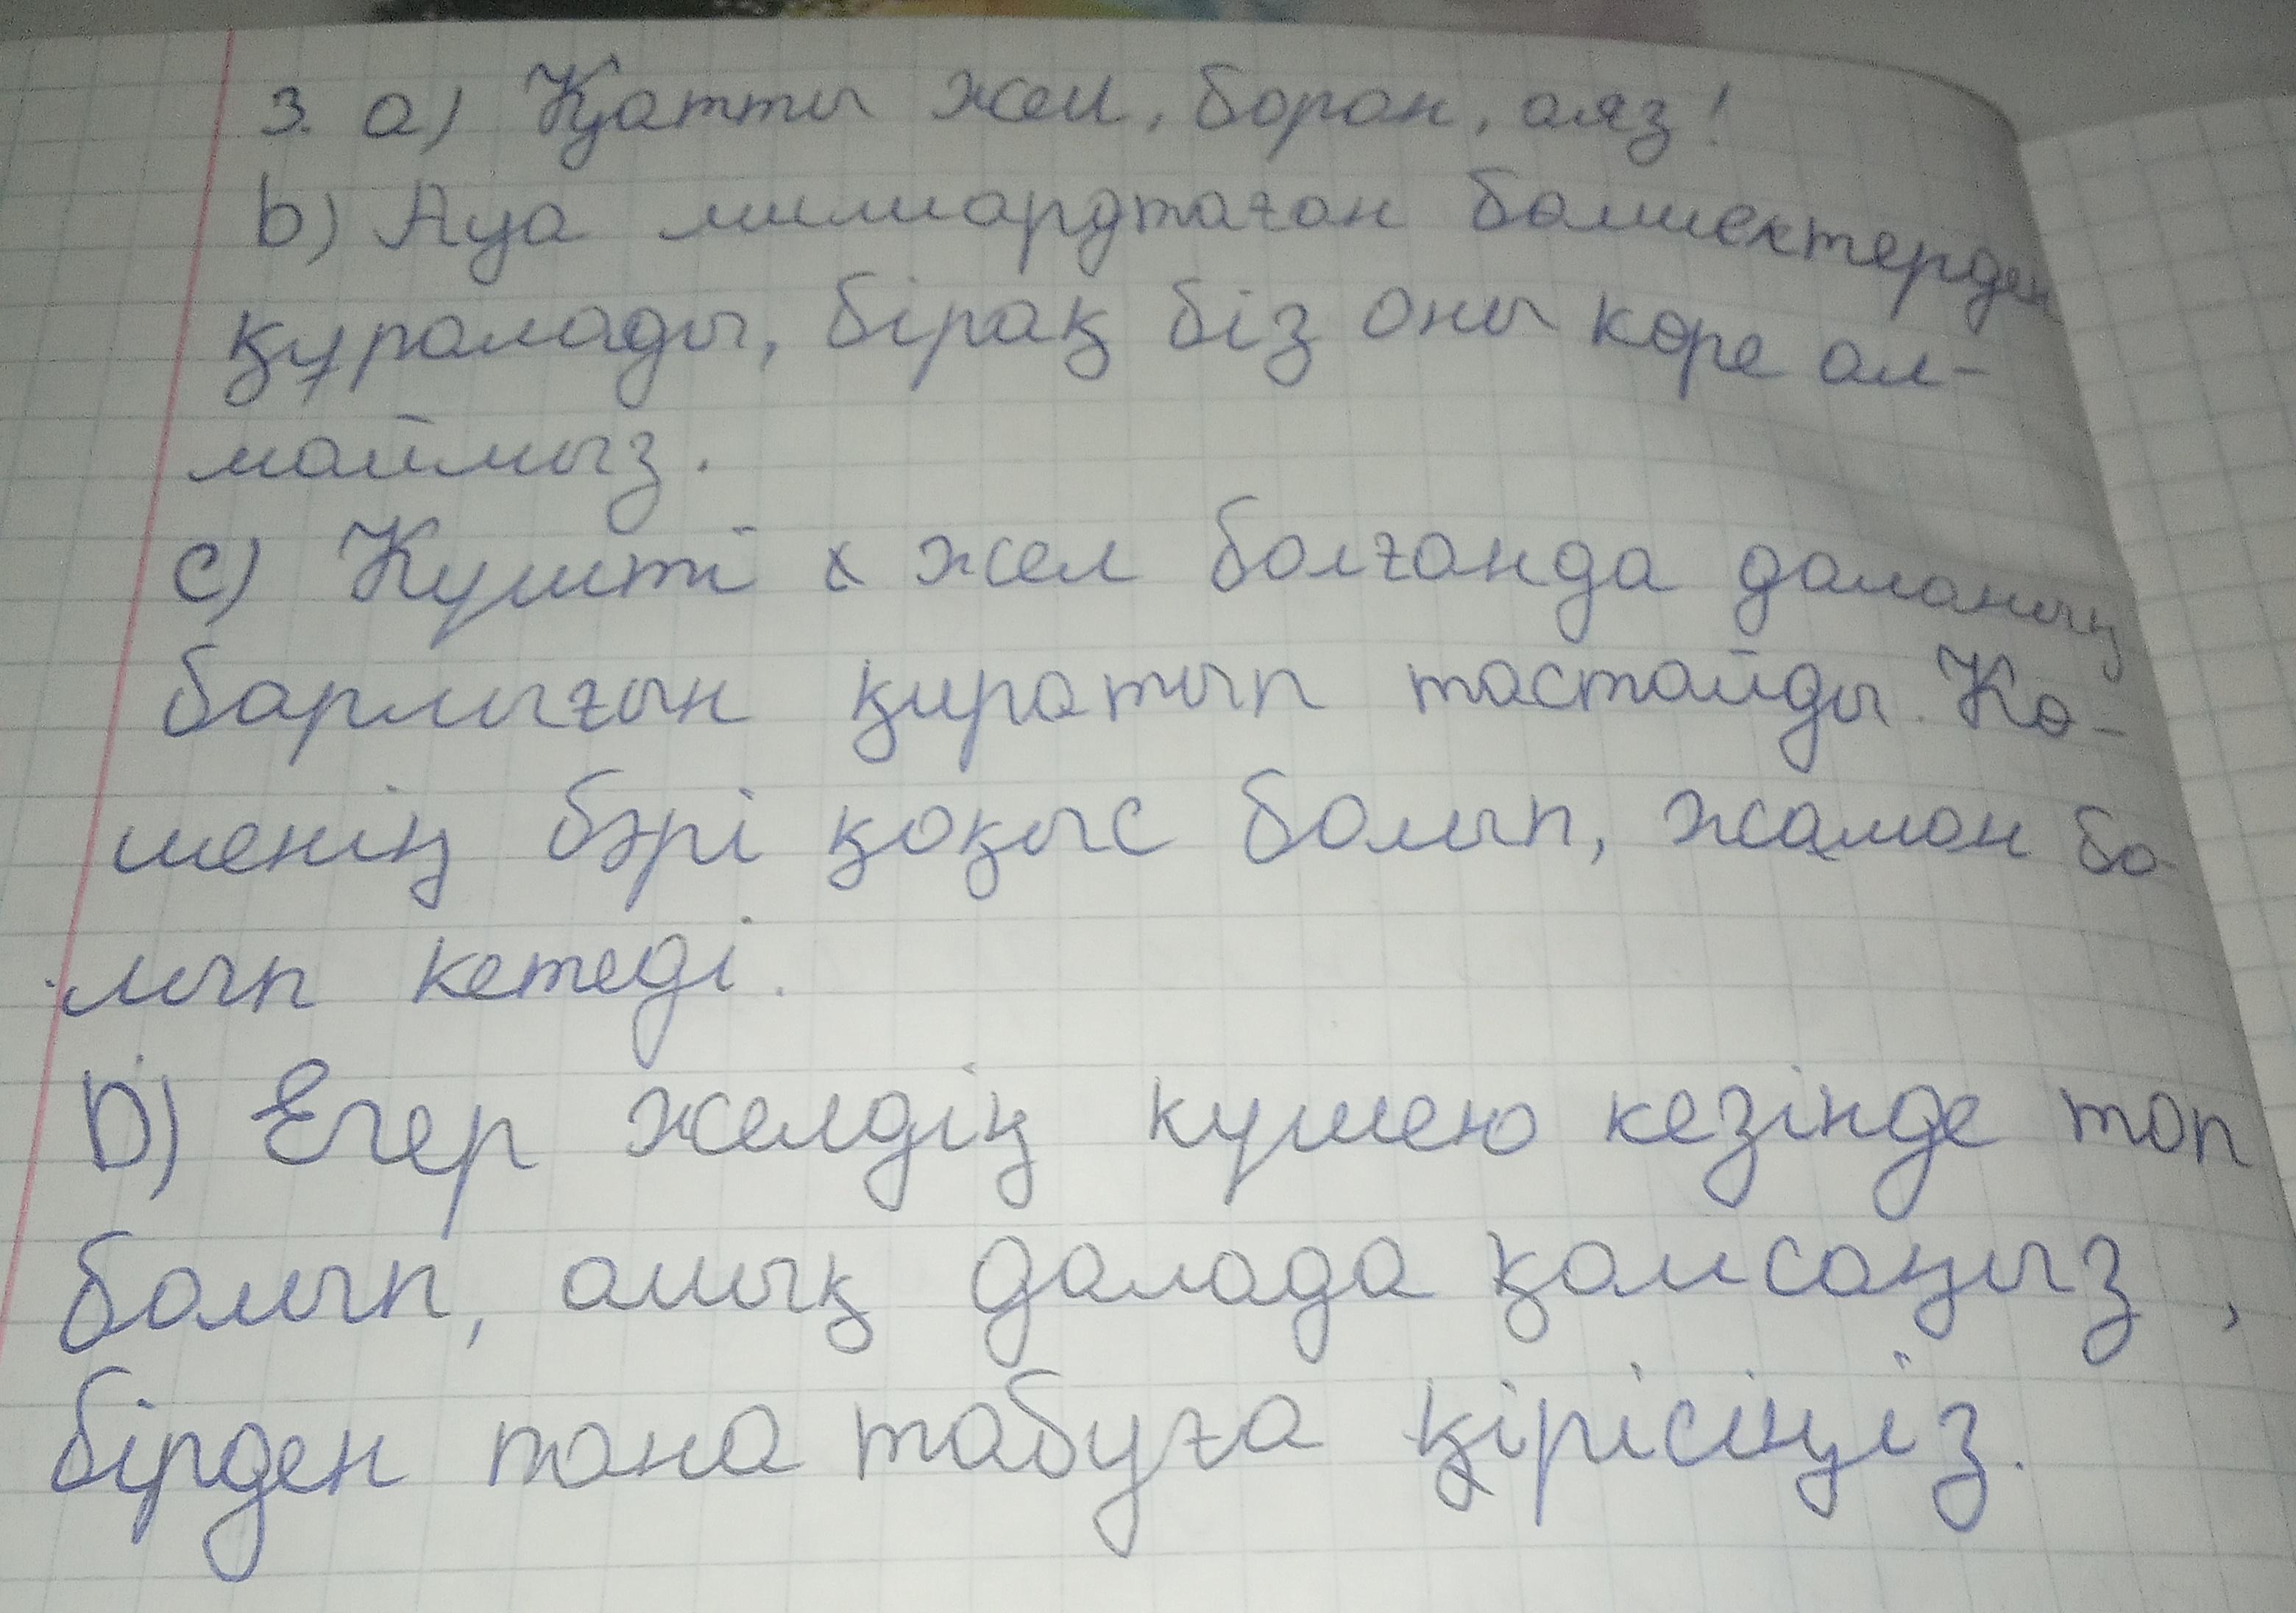 3. a) Қатты жел, боран, аяз!
b) Ауа миллиардтаған бөлшектерден
құралады, бірақ біз оны көре ал-
маймыз.
c) Күшті жел болғанда даланың
барлығын қиратып тастайды. Кө-
шенің бәрі қоқыс болып, жаман бо-
лып кетеді.
D) Егер желдің күшею кезінде тап
болып, ашық далада қалсаңыз,
бірден пана табуға кірісіңіз.